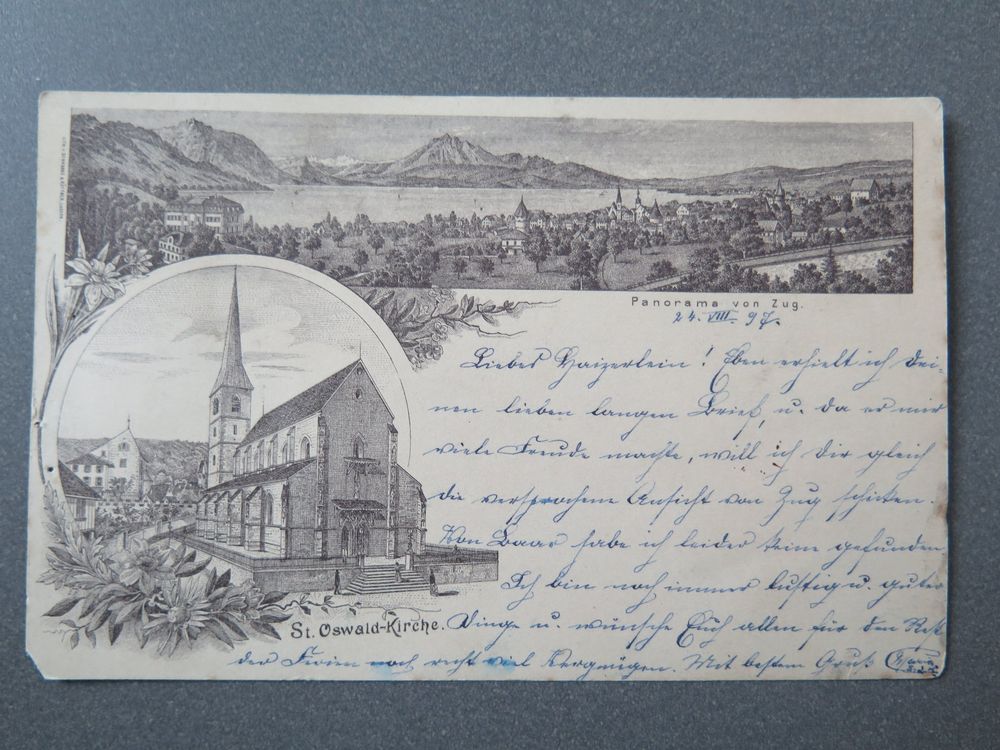 Panorama von Zug.
24. VIII. 97.
Liebes Haizerlein! Eben erhielt ich Dei-
nen lieben langen Brief, u. da er mir
viele Freude machte, will ich Dir gleich
die versprochene Ansicht von Zug schicken.
Von Baar habe ich leider keine gefunden
Ich bin noch immer lustig u. guter
St. Oswald-Kirche.
Dinge u. wünsche Euch allen für den Rest
der Ferien noch recht viel Vergnügen. Mit bestem Gruß
Maria